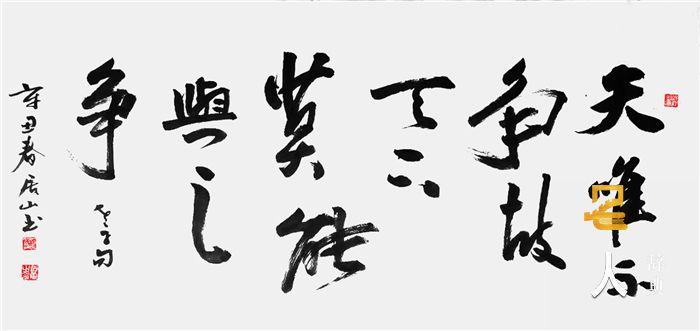 夫唯不
争故
天下
莫能
與之
争
老子句
辛丑春居山书
人